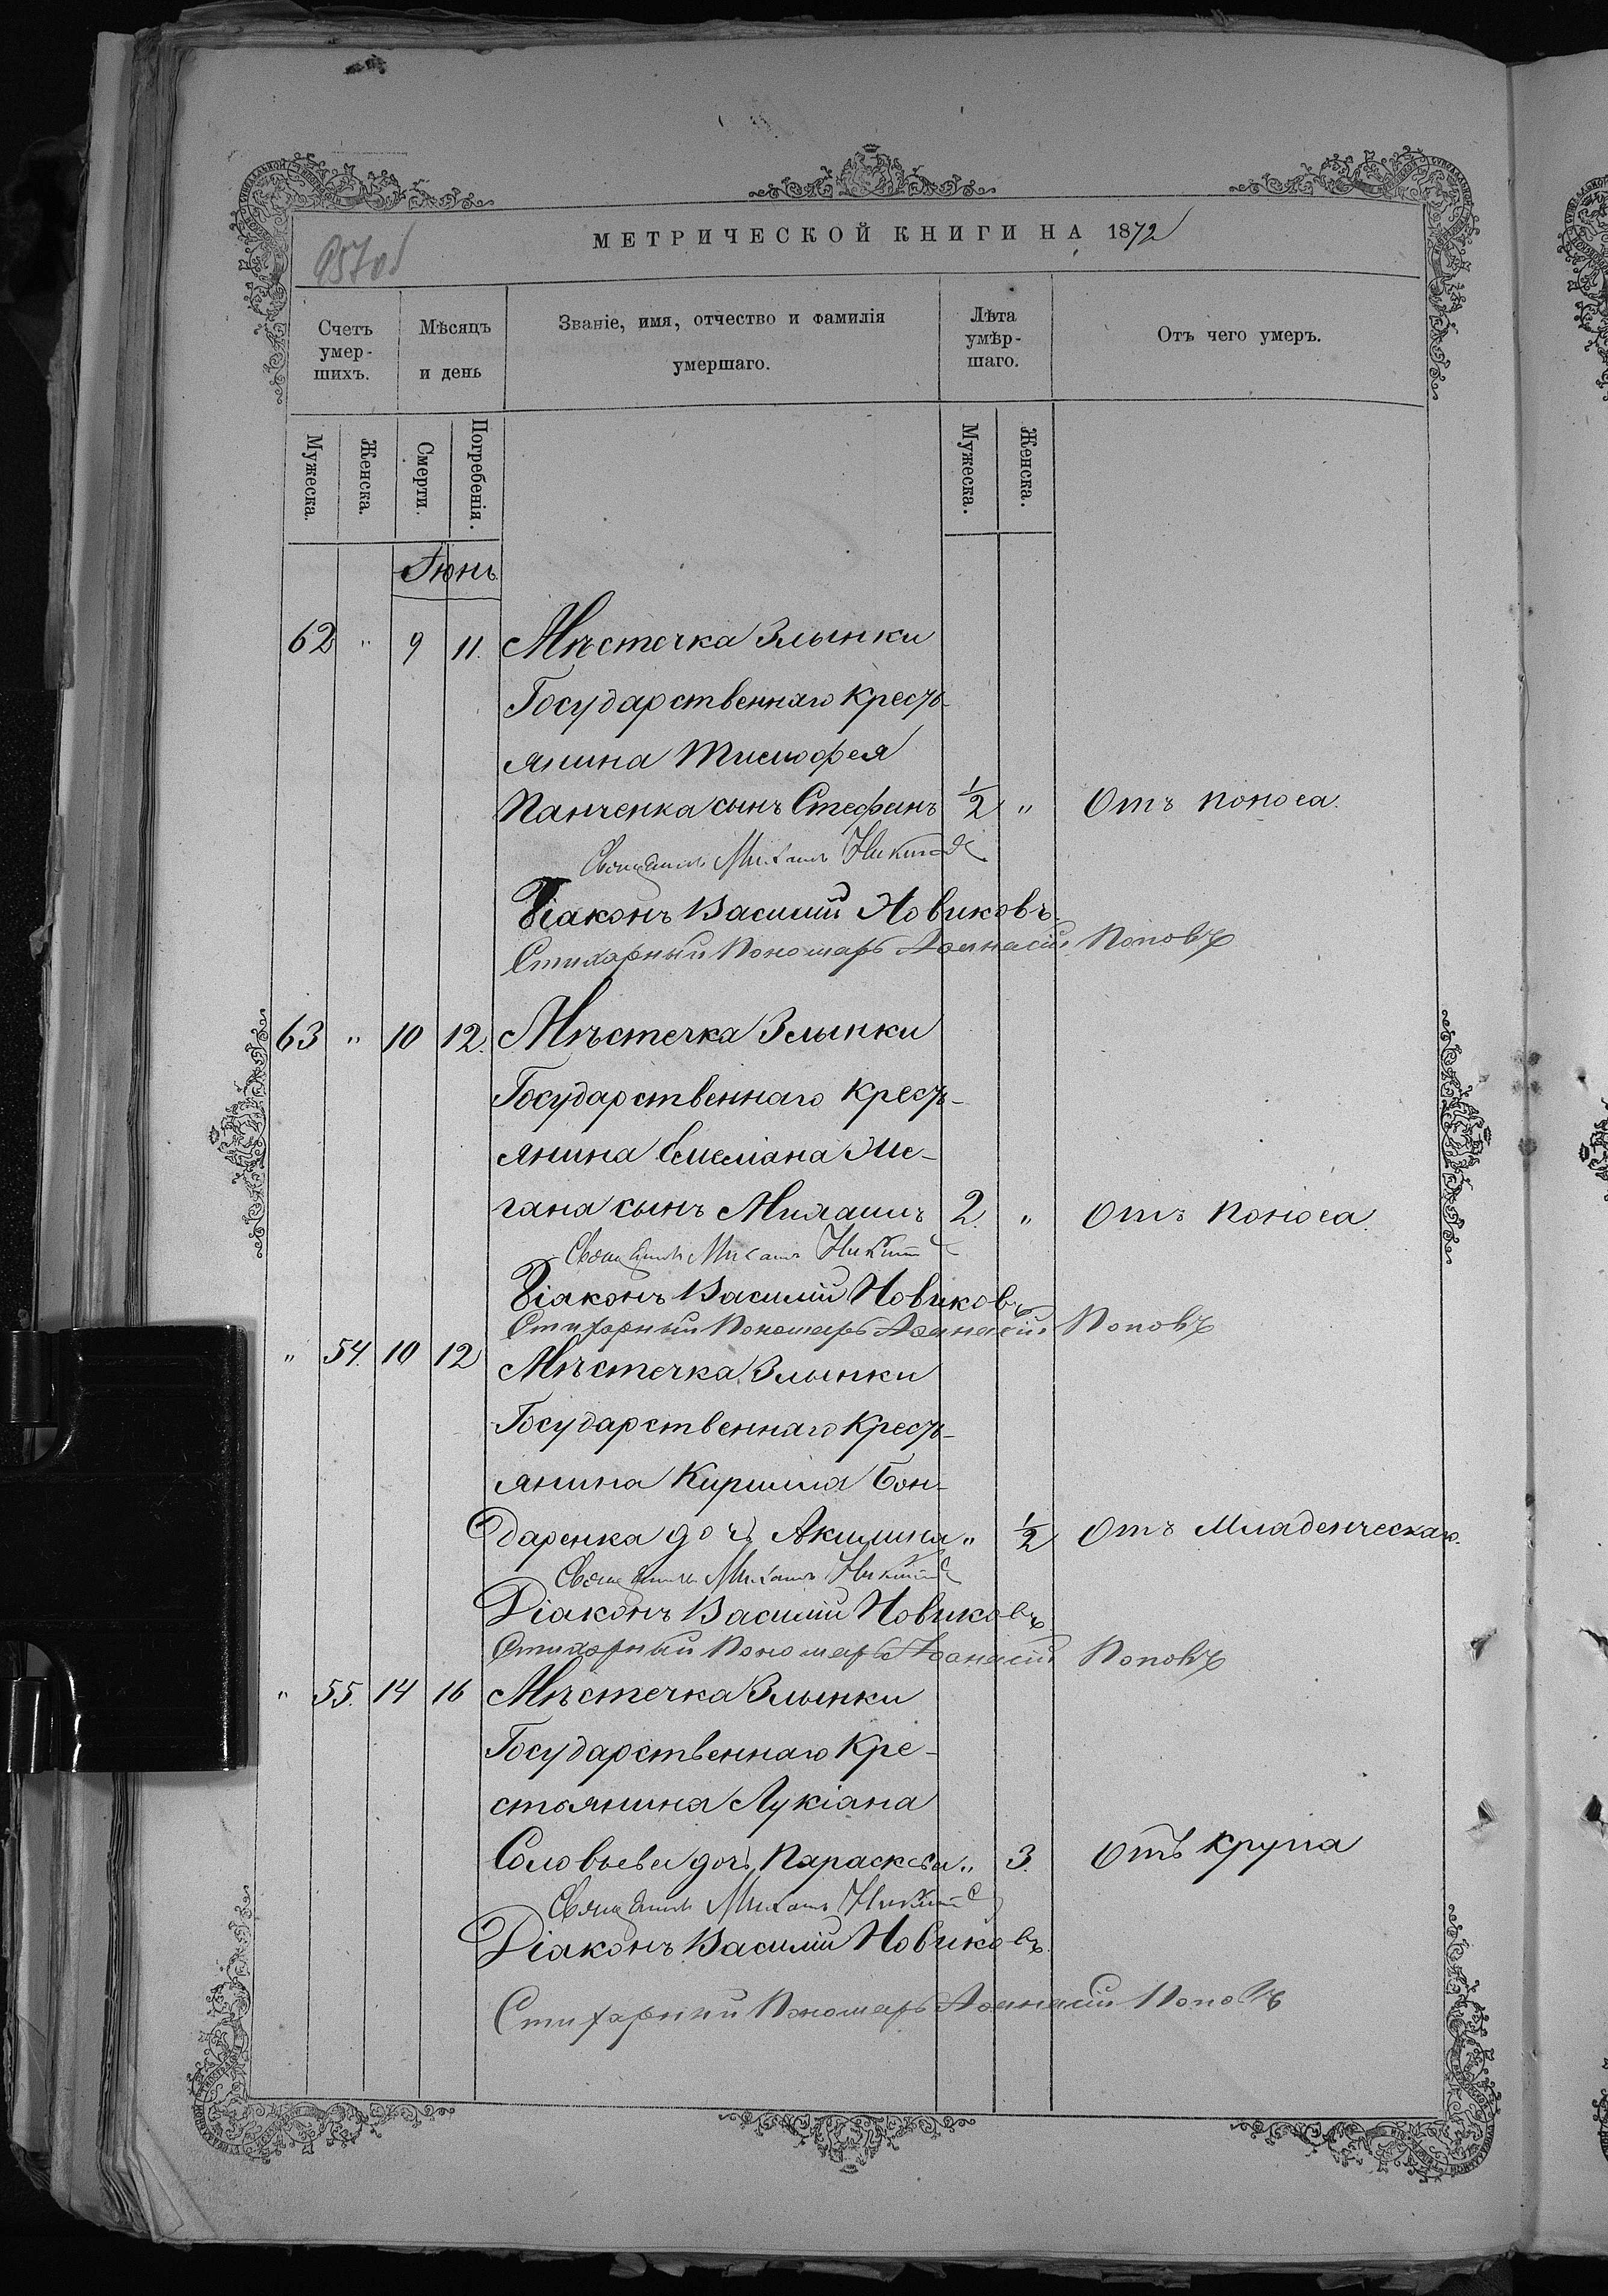 МЕТРИЧЕСКОЙ КНИГИ НА 1872
Счетъ умер-шихъ.
Мѣсяцъ и день
Званіе, имя, отчество и фамилія умершаго.
Лѣта умѣр-шаго.
Отъ чего умеръ.
Мужеска. Женска. Смерти. Погребенія. Мужеска. Женска.
Іюнь
62 " 9 11. Мѣстечка Злынки
Государственнаго кресть-
янина Тимофея
Панченка сынъ Стефанъ 1/2 " Отъ поноса.
Священникъ Михаилъ
Діаконъ Василій Новиковъ.
Стихарный Пономарь Аѳанасій Поповъ
63 " 10 12. Мѣстечка Злынки
Государственнаго кресть-
янина Емеліана
гана сынъ Михаилъ 2. " Отъ поноса.
Священникъ Михаилъ
Діаконъ Василій Новиковъ
Стихарный Пономарь Аѳанасій Поповъ
" 54. 10 12 Мѣстечка Злынки
Государственнаго кресть-
янина Кирилла Бон-
даренка дочь Акилина " 1/2 Отъ Младенческаго.
Священникъ Михаилъ
Діаконъ Василій Новиковъ
Стихарный Пономарь Аѳанасій Поповъ
" 55. 14 16 Мѣстечка Злынки
Государственнаго Кре-
стьянина Лукіана
Соловьева дочь Параскева " 3. Отъ крупа
Священникъ Михаилъ
Діаконъ Василій Новиковъ.
Стихарный Пономарь Аѳанасій Поповъ